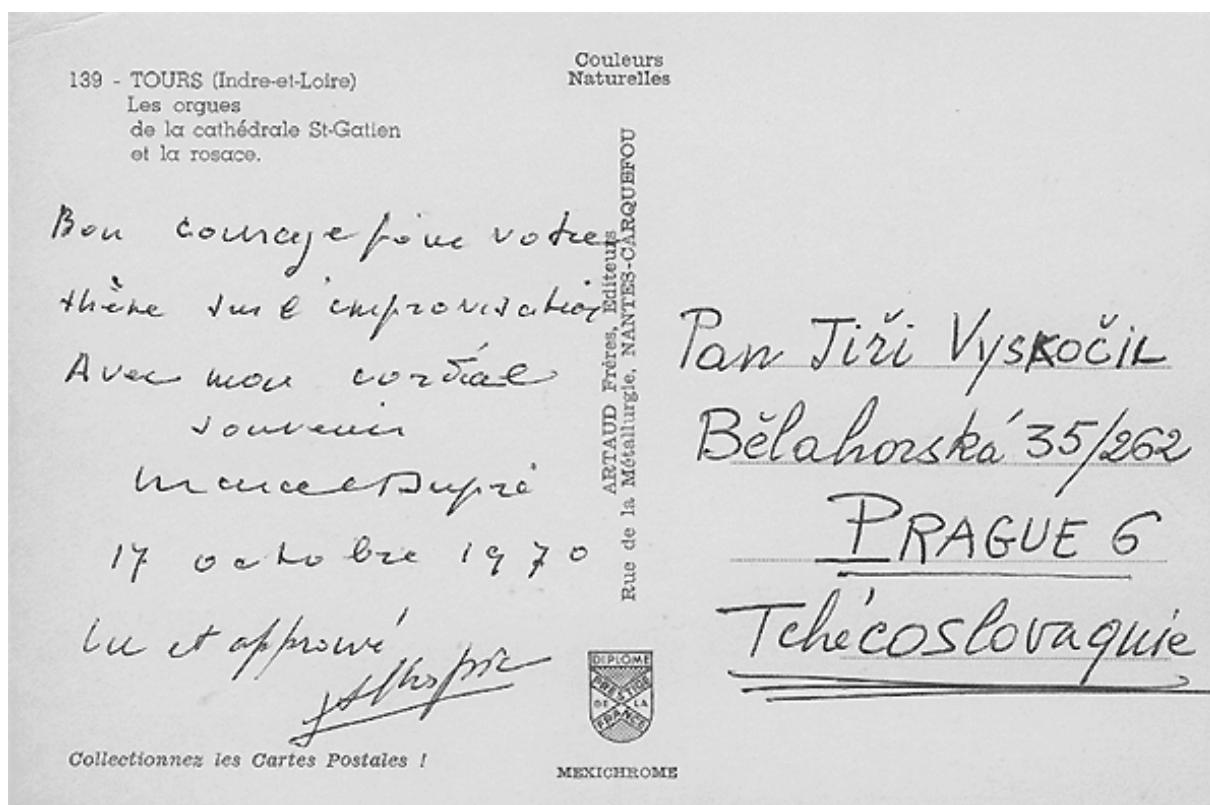 139 - TOURS (Indre-et-Loire)
Les orgues
de la cathédrale St-Gatien
et la rosace.
Couleurs
Naturelles
Bon courage pour votre
thème sur l'improvisation
Avec mon cordial
souvenir
Marcel Dupré
17 octobre 1970
Lu et approuvé
ARTAUD Frères, Editeurs
Rue de la Métallurgie, NANTES-CARQUEFOU
Pan Jiři Vyskočil
Bělahorská 35/262
PRAGUE 6
Tchécoslovaquie
DIPLOME
PRESTIGE
DE LA
FRANCE
MEXICHROME
Collectionnez les Cartes Postales !